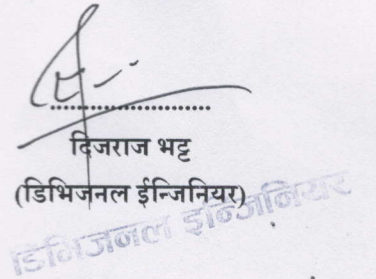 दिजराज भट्ट
(डिभिजनल ईन्जिनियर)
डिभिजनल इन्जिनियर